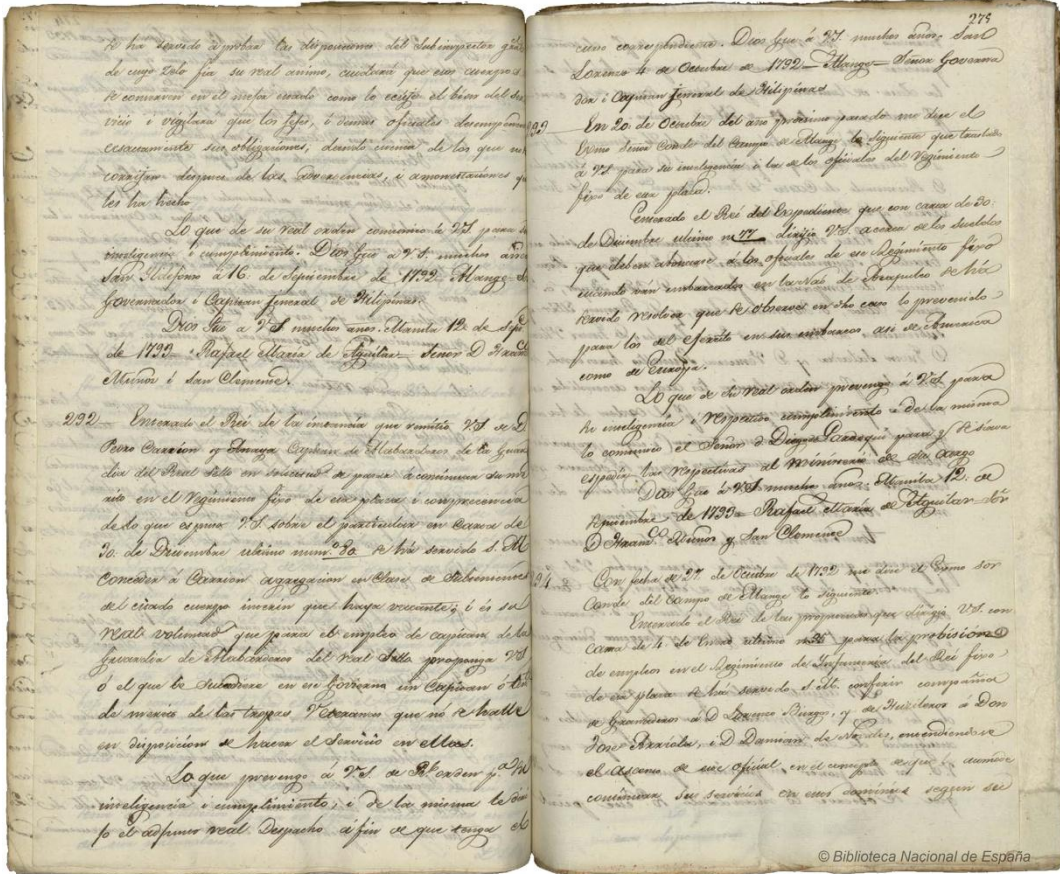 se ha servido aprobar las disposiciones del Subinspector gral
de cuyo zelo fia su real animo, cuidará que esos cuerpos
se conserven en el mejor estado como lo ecsije el bien del ser
vicio i vigilará que los Jefes, i demas oficiales desempeñen
ecsactamente sus obligaciones; dando cuenta de los que no
corrijan despues de las advertencias, i amonestaciones q
les ha hecho
Lo que de su real orden comunico á VS para su
inteligencia i cumplimiento. Dios Gue á V.S. muchos años
San Ildefonso á 16. de Septiembre de 1792 Alange
Governador i Capitan Jeneral de Filipinas.
Dios Gue á V.S muchos anos. Manila 12 de Sepre
de 1793 Rafael Maria de Aguilar Señor D Franco
Muñoz i San Clemente.
292 Enterado el Rei de la instancia que remitió V.S de D
Pedro Carrion y Capitan de Alabarderos de la Guar
dia del Real Sello en solicitud de pasar á continuar su me
rito en el Regimiento fixo de esa plaza i con presencia
de lo que espuso V.S sobre el particular en carta de
30. de Diciembre ultimo num.o 80 se há servido S. M
conceder á Carrion agregacion en clase de Subteniente
del citado cuerpo interin que haya vacante; i és su
real voluntad que para el empleo de capitan de la
Guardia de Alabarderos del real Sello proponga V.S
ó el que le sucediere en ese Govierno un Capitan ó
de merito de las tropas Veteranas que nó se halle
en disposicion de hacer el Servicio en ellas.
Lo que prevengo á V.S. de Rl orden pa su
inteligencia i cumplimiento, i de la misma le
el adjunto real Despacho á fin de que tenga el
275
curso correspondiente. Dios Gue á VS muchos años. San
Lorenzo 4 de Octubre de 1792 Alange Señor Governa
dor i Capitan Jeneral de Filipinas
293 En 20. de Octubre del año procsimo pasado me dice el
Ecmo Señor Conde del Campo de Alange lo siguiente que traslado
á VS para su inteligencia i la de los oficiales del Regimiento
fixo de esa plaza.
Enterado el Rei del Expediente que con carta de 30.
de Diciembre ultimo no 77 dirijio V.S. acerca de los sueldos
que deben abonarse á los oficiales de ese Regimiento fixo
cuando ván embarcados en la Nao de Acapulco se há
servido resolver que se observe en dho caso lo prevenido
para los del ejército en sus embarcos asi de America
como de Europa.
Lo que de su real orden prevengo á V.S para
su inteligencia i respectivo cumplimiento i de la misma
lo comunico el Señor D Diego Gardoqui para q se sirva
espedir las respectivas al ministerio de su cargo
Dios Gue á V.S muchos años. Manila 12. de
Septiembre de 1793 Rafael Maria de Aguilar Sor
D Franco Muñoz y San Clemente
294 Con fecha de 27 de Octubre de 1792 me dice el Ecsmo Sor
Conde del Campo de Alange lo siguiente.
Enterado el Rei de las propuestas que dirijió V.S. con
carta de 4 de Enero ultimo no 36 para la probision
de empleos en el Regimiento de Infanteria del Rei fixo
de esa plaza se há servido S. M. conferir compañias
de Granaderos á D Lorenzo Burgos, y de Fusileros á Don
Jose i D Damian de , entendiendose
el ascenso de este oficial en el concepto de que
continuar su servicio en esos dominios segun su
© Biblioteca Nacional de España